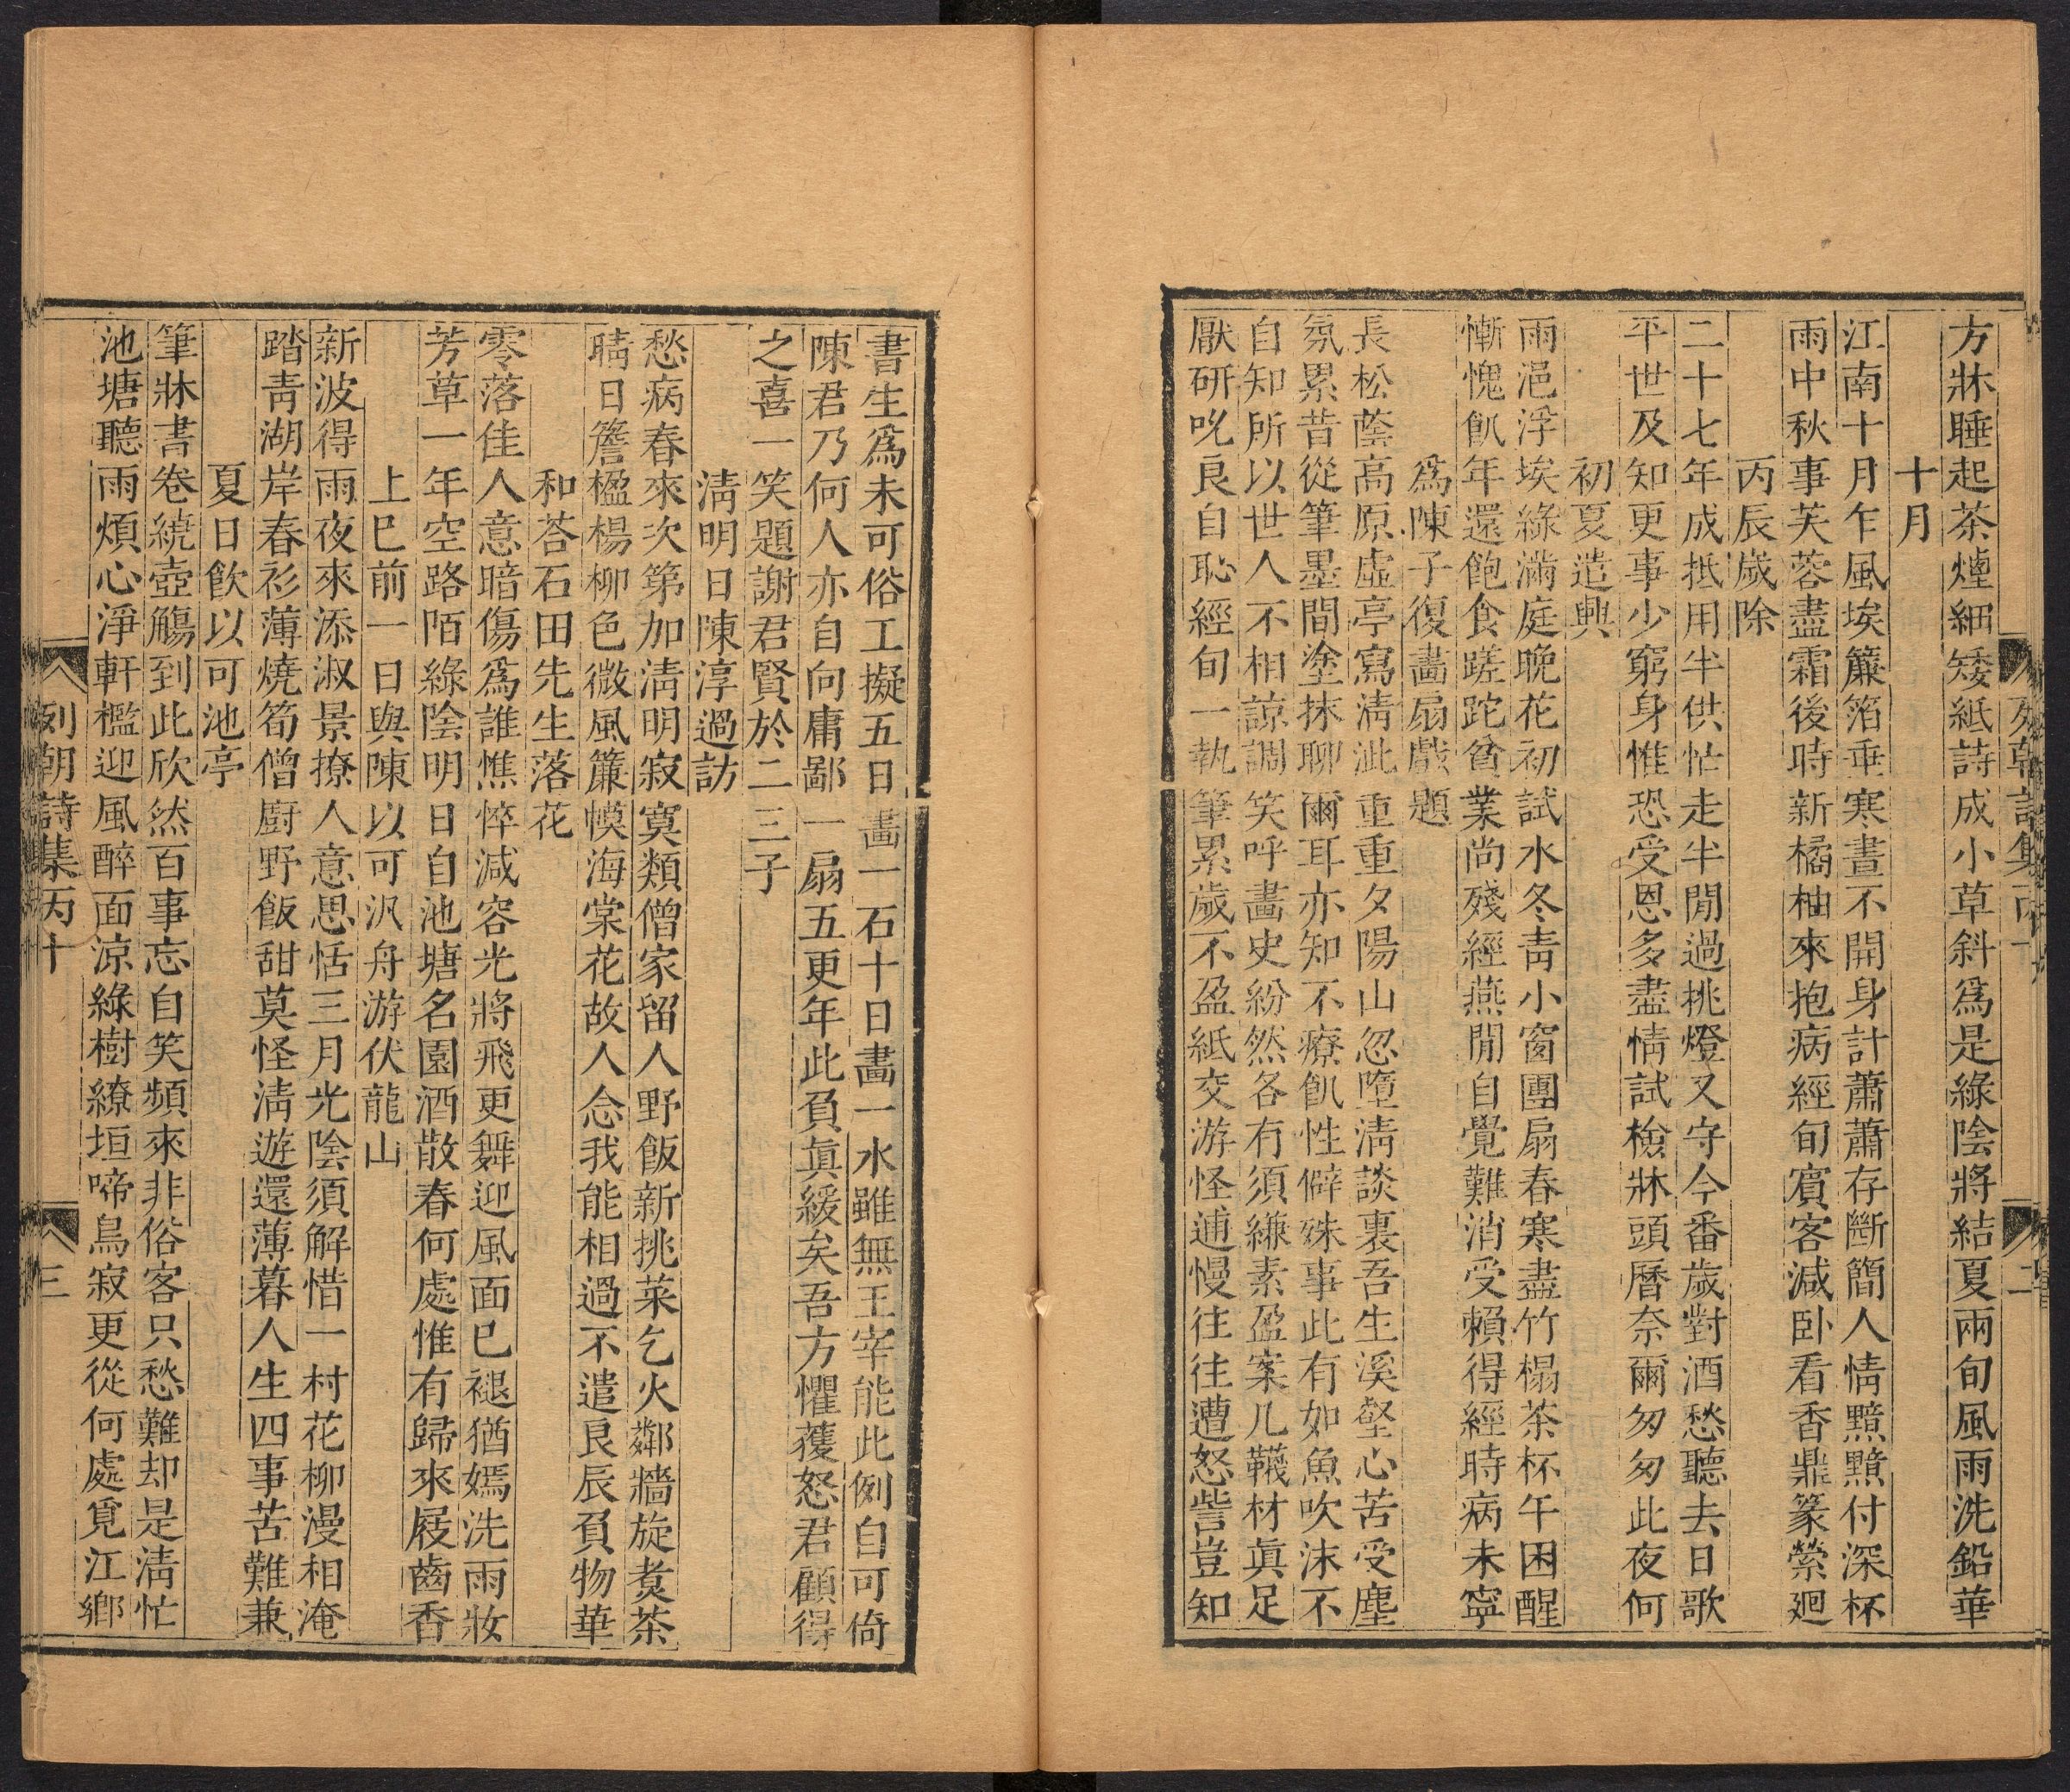 方牀睡起茶煙細矮紙詩成小草斜爲是綠陰將結夏兩旬風雨洗鉛華
十月
江南十月乍風埃簾箔垂寒晝不開身計蕭蕭存斷簡人情黯黯付深杯
雨中秋事芙蓉盡霜後時新橘柚來抱病經旬賓客減卧看香鼎篆縈廻
丙辰歲除
二十七年成抵用半供忙走半閒過挑燈又守今番歲對酒愁聽去日歌
平世及知更事少窮身惟恐受恩多盡情試檢牀頭曆奈爾匆匆此夜何
初夏遣興
雨浥浮埃綠滿庭晚花初試水冬靑小窗團扇春寒盡竹榻茶杯午困醒
慚愧飢年還飽食蹉跎貧業尚殘經燕閒自覺難消受賴得經時病未寧
爲陳子復畫扇戲題
長松蔭高原虛亭寫淸泚重重夕陽山忽墮淸談裏吾生溪壑心苦受塵
氛累昔從筆墨間塗抹聊爾耳亦知不療飢性僻殊事此有如魚吹沫不
自知所以世人不相諒調笑呼畫史紛然各有須縑素盈案几韈材眞足
厭研吮良自恥經旬一執筆累歲不盈紙交游怪逋慢往往遭怒訾豈知
列朝詩集丙十
二
書生爲未可俗工擬五日畫一石十日畫一水雖無王宰能此例自可倚
陳君乃何人亦自向庸鄙一扇五更年此負眞緩矣吾方懼獲怒君顧得
之喜一笑題謝君賢於二三子
淸明日陳淳過訪
愁病春來次第加淸明寂寞類僧家留人野飯新挑菜乞火鄰牆旋煑茶
晴日簷楹楊柳色微風簾幙海棠花故人念我能相過不遣良辰負物華
和荅石田先生落花
零落佳人意暗傷爲誰憔悴減容光將飛更舞迎風面已褪猶嫣洗雨妝
芳草一年空路陌綠陰明日自池塘名園酒散春何處惟有歸來屐齒香
上巳前一日與陳以可汎舟游伏龍山
新波得雨夜來添淑景撩人意思恬三月光陰須解惜一村花柳漫相淹
踏靑湖岸春衫薄燒筍僧廚野飯甜莫怪淸遊還薄暮人生四事苦難兼
夏日飮以可池亭
筆牀書卷繞壺觴到此欣然百事忘自笑頻來非俗客只愁難却是淸忙
池塘聽雨煩心淨軒檻迎風醉面涼綠樹繚垣啼鳥寂更從何處覓江鄕
列朝詩集丙十
三